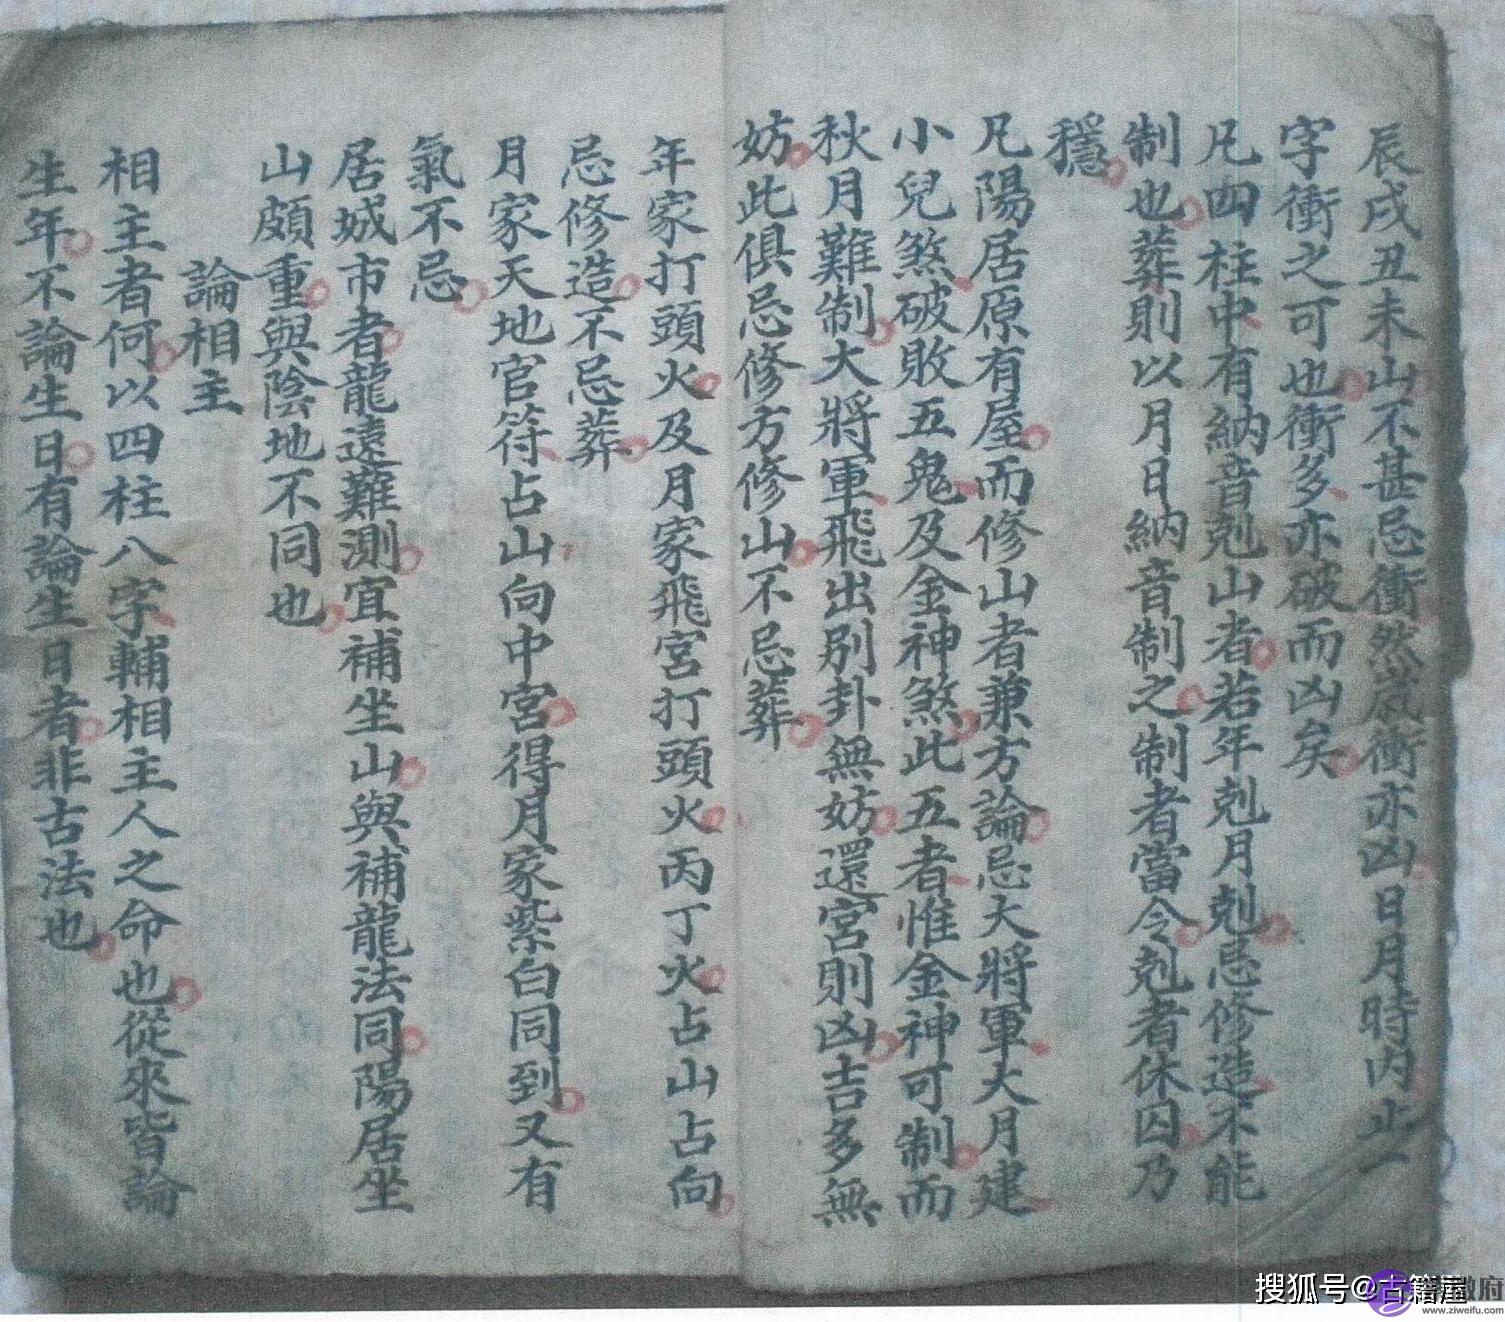 辰戌丑未山不甚忌衝然歲衝亦凶日月時內止一
字衝之可也衝多亦破而凶矣
凡四柱中有納音剋山者若年剋月剋忌修造不能
制也葬則以月日納音制之制者當令剋者休囚乃
穩
凡陽居原有屋而修山者兼方論忌大將軍大月建
小兒煞破敗五鬼及金神煞此五者惟金神可制而
秋月難制大將軍飛出別卦無妨還宮則凶吉多無
妨此俱忌修方修山不忌葬
年家打頭火及月家飛宮打頭火丙丁火占山占向
忌修造不忌葬
月家天地官符占山向中宮得月家紫白同到又有
氣不忌
居城市者龍遠難測宜補坐山與補龍法同陽居坐
山頗重與陰地不同也
論相主
相主者何以四柱八字輔相主人之命也從來皆論
生年不論生日有論生日者非古法也
搜狐号@古籍屋
www.ziweifu.com